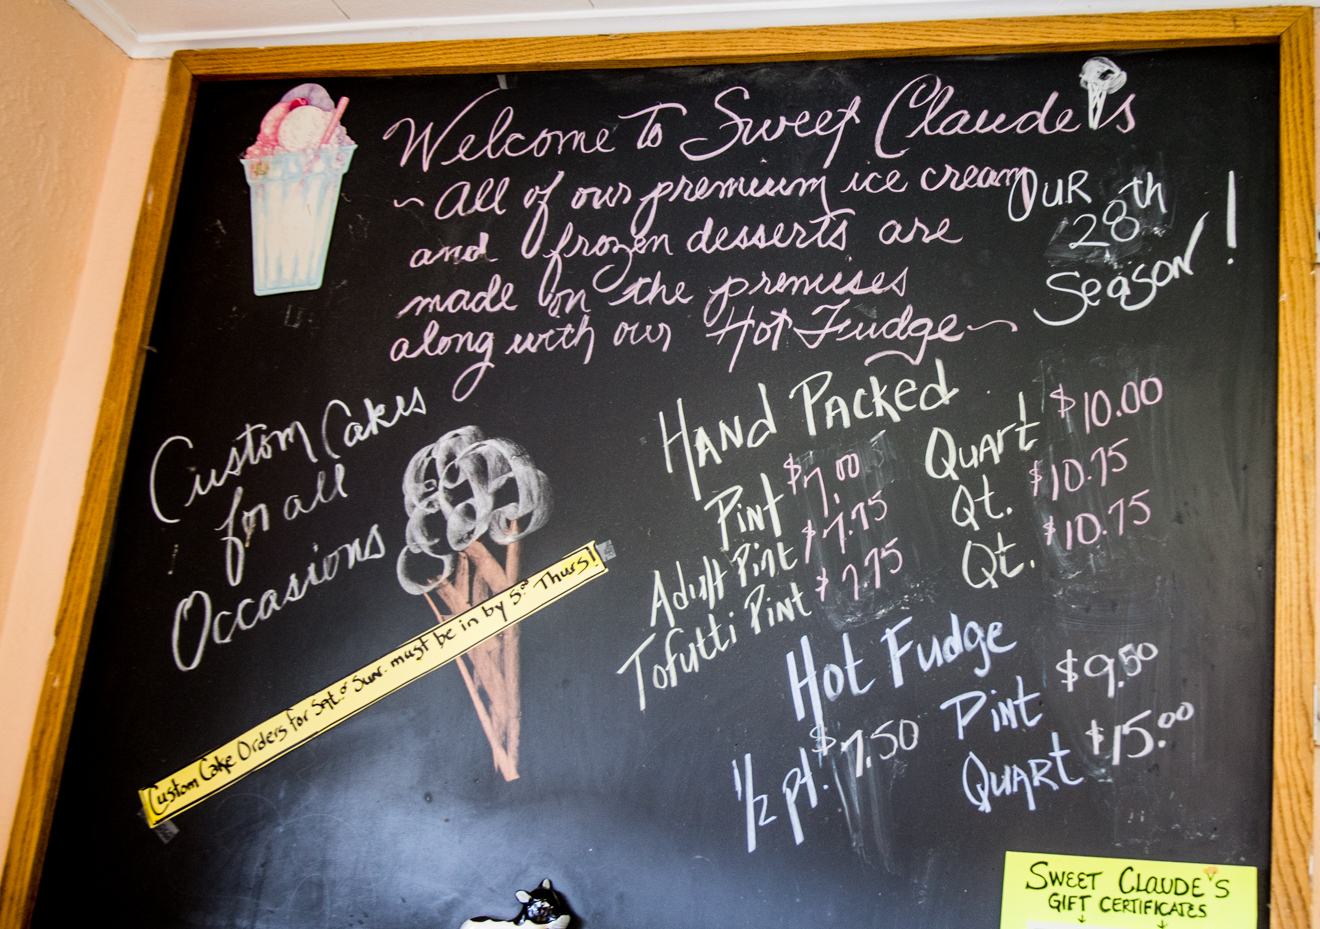 Welcome To Sweet Claude's
~ All of our premium ice cream
and frozen desserts are
made on the premises
along with our Hot Fudge ~
OUR
28th
Season!
Custom Cakes
for all
Occasions
Custom Cake Orders for Sat. or Sun. must be in by 5:00 Thurs!
Hand Packed
Pint $7.00 Quart $10.00
Adult Pint $7.75 Qt. $10.75
Tofutti Pint $7.75 Qt. $10.75
Hot Fudge
1/2 pt. $7.50 Pint $9.50
Quart $15.00
SWEET CLAUDE'S
GIFT CERTIFICATES